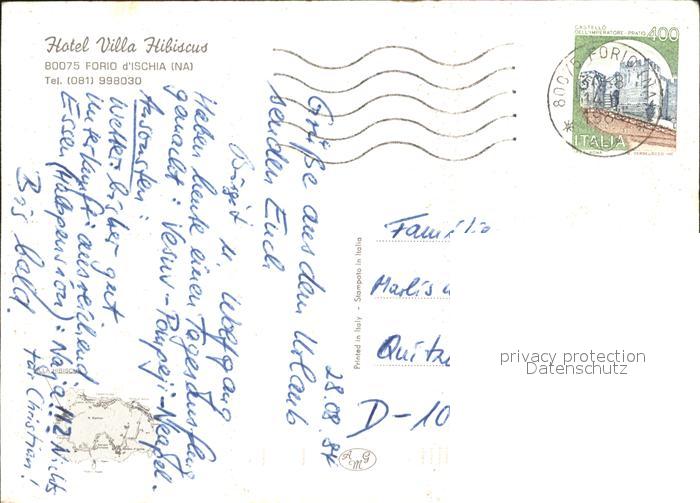 Hotel Villa Hibiscus
80075 FORIO d'ISCHIA (NA)
Tel. (081) 998030
CASTELLO
DELL'IMPERATORE - PRATO
400
80075 FORIO (NA)
ITALIA
28.08.84
Grüße aus dem Urlaub
senden Euch
Birgit u. Wolfgang
Haben heute einen Tagesausflug
gemacht: Vesuv-Pompeji-Neapel.
Ansonsten:
Wetter bisher gut
Unterkunft: ausreichend
Essen (Halbpension): Naja!!! Nichts
für Christian!
Bis bald.
Printed in Italy - Stampato in Italia
Familie
Marlis
Quitz
D-10
AMG
privacy protection
Datenschutz